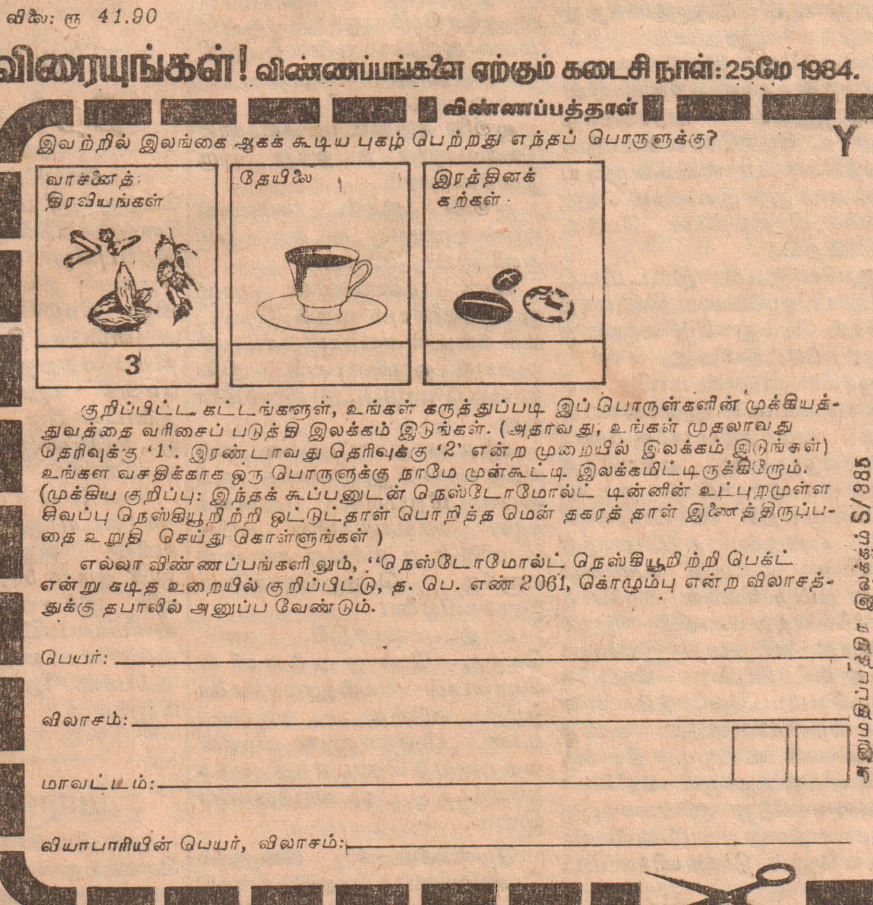 விலை: ரூ 41.90
விரையுங்கள்! விண்ணப்பங்களை ஏற்கும் கடைசி நாள்: 25மே 1984.
விண்ணப்பத்தாள்
Y
இவற்றில் இலங்கை ஆகக் கூடிய புகழ் பெற்றது எந்தப் பொருளுக்கு?
வாசனைத்
திரவியங்கள்
தேயிலை
இரத்தினக்
கற்கள்
3
குறிப்பிட்ட கட்டங்களுள், உங்கள் கருத்துப்படி இப் பொருள்களின் முக்கியத்-
துவத்தை வரிசைப் படுத்தி இலக்கம் இடுங்கள். (அதாவது, உங்கள் முதலாவது
தெரிவுக்கு ‘1’. இரண்டாவது தெரிவுக்கு ‘2’ என்ற முறையில் இலக்கம் இடுங்கள்)
உங்கள வசதிக்காக ஒரு பொருளுக்கு நாமே முன்கூட்டி இலக்கமிட்டிருக்கிறோம்.
(முக்கிய குறிப்பு: இந்தக் கூப்பனுடன் நெஸ்டோமோல்ட் டின்னின் உட்புறமுள்ள
சிவப்பு நெஸ்கியூறிற்றி ஒட்டுட்தாள் பொறித்த மென் தகரத் தாள் இணைத்திருப்ப-
தை உறுதி செய்து கொள்ளுங்கள் )
எல்லா விண்ணப்பங்களிலும், “நெஸ்டோமோல்ட் நெஸ்கியூறிற்றி பெக்ட்
என்று கடித உறையில் குறிப்பிட்டு, த. பெ. எண் 2061, கொழும்பு என்ற விலாசத்-
துக்கு தபாலில் அனுப்ப வேண்டும்.
பெயர்:
விலாசம்:
மாவட்டம்:
வியாபாரியின் பெயர், விலாசம்:
அனுமதிப்பத்திர இலக்கம் S/385